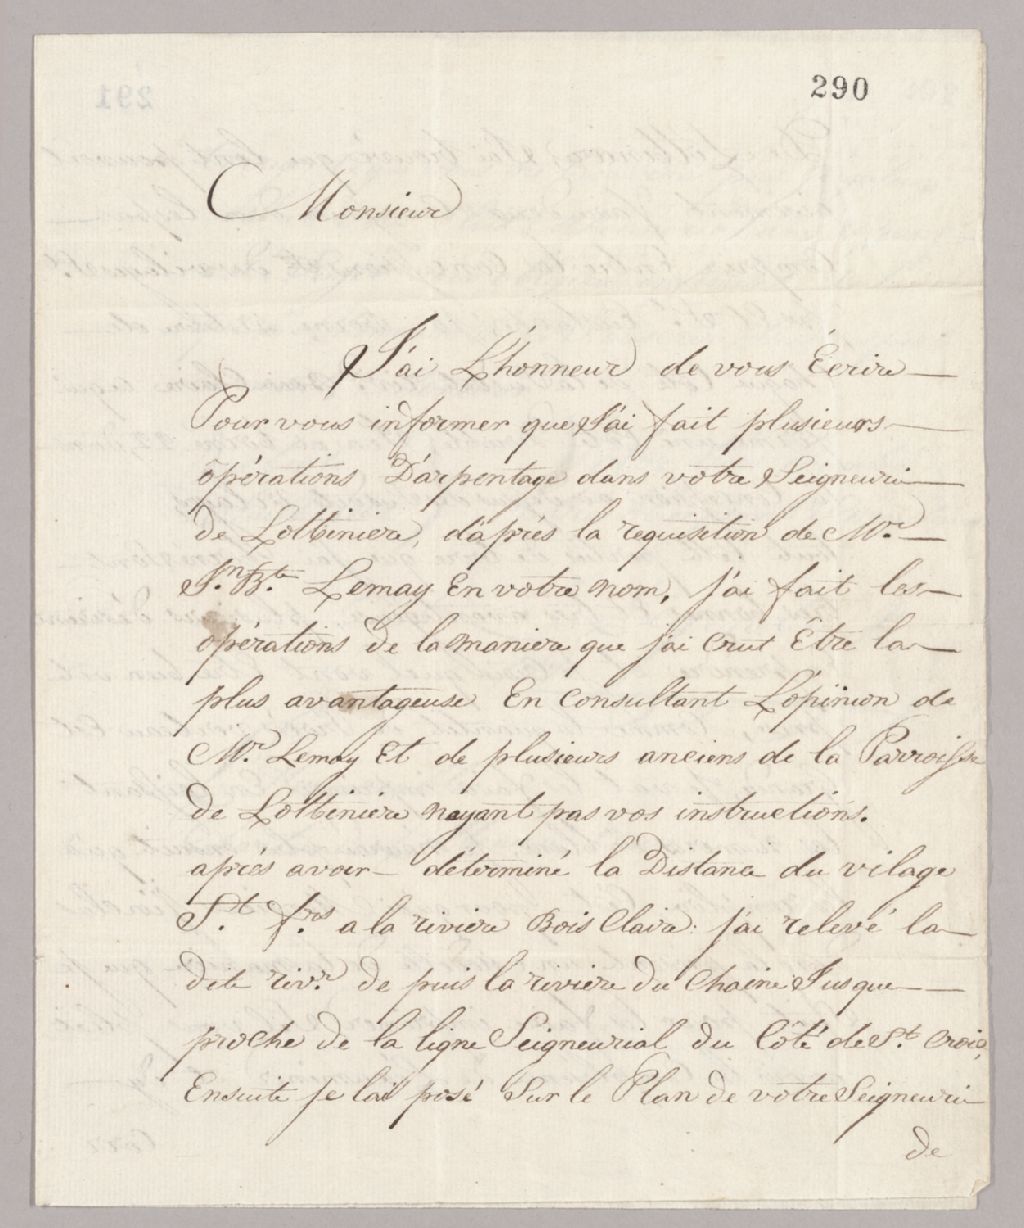 290
Monsieur
J'ai L'honneur de vous Écrire
Pour vous informer que J'ai fait plusieurs
opérations D'arpentage dans votre Seigneurie
de Lotbiniere, d'après la requisition de Mr.
Jn. Bte. Lemay En votre nom, j'ai fait les
opérations de la maniere que j'ai crut Être la
plus avantageuse En consultant L'opinion de
Mr. Lemay Et de plusieurs anciens de la Parroisse
de Lotbiniere nayant pas vos instructions.
après avoir déterminé la Distance du vilage
St. frs. a la riviere Bois Claire j'ai relevé la
dite rivr. de puis la riviere du Chaine Jusque
proche de la ligne Seigneurial du Côté de St. Croix,
Ensuite je lai posé Sur le Plan de votre Seigneurie
de